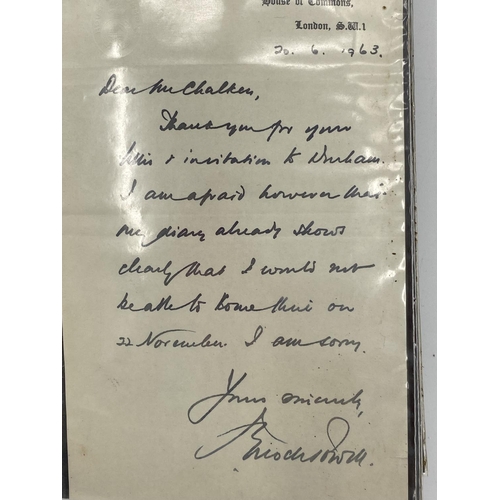 House of Commons,
London, S.W.1
20. 6. 1963.
Dear Mr Chalken,
Thank you for your
letter & invitation to Durham.
I am afraid however that
my diary already shows
clearly that I would not
be able to come then on
22 November. I am sorry.
Yours sincerely,
Enoch Powell.